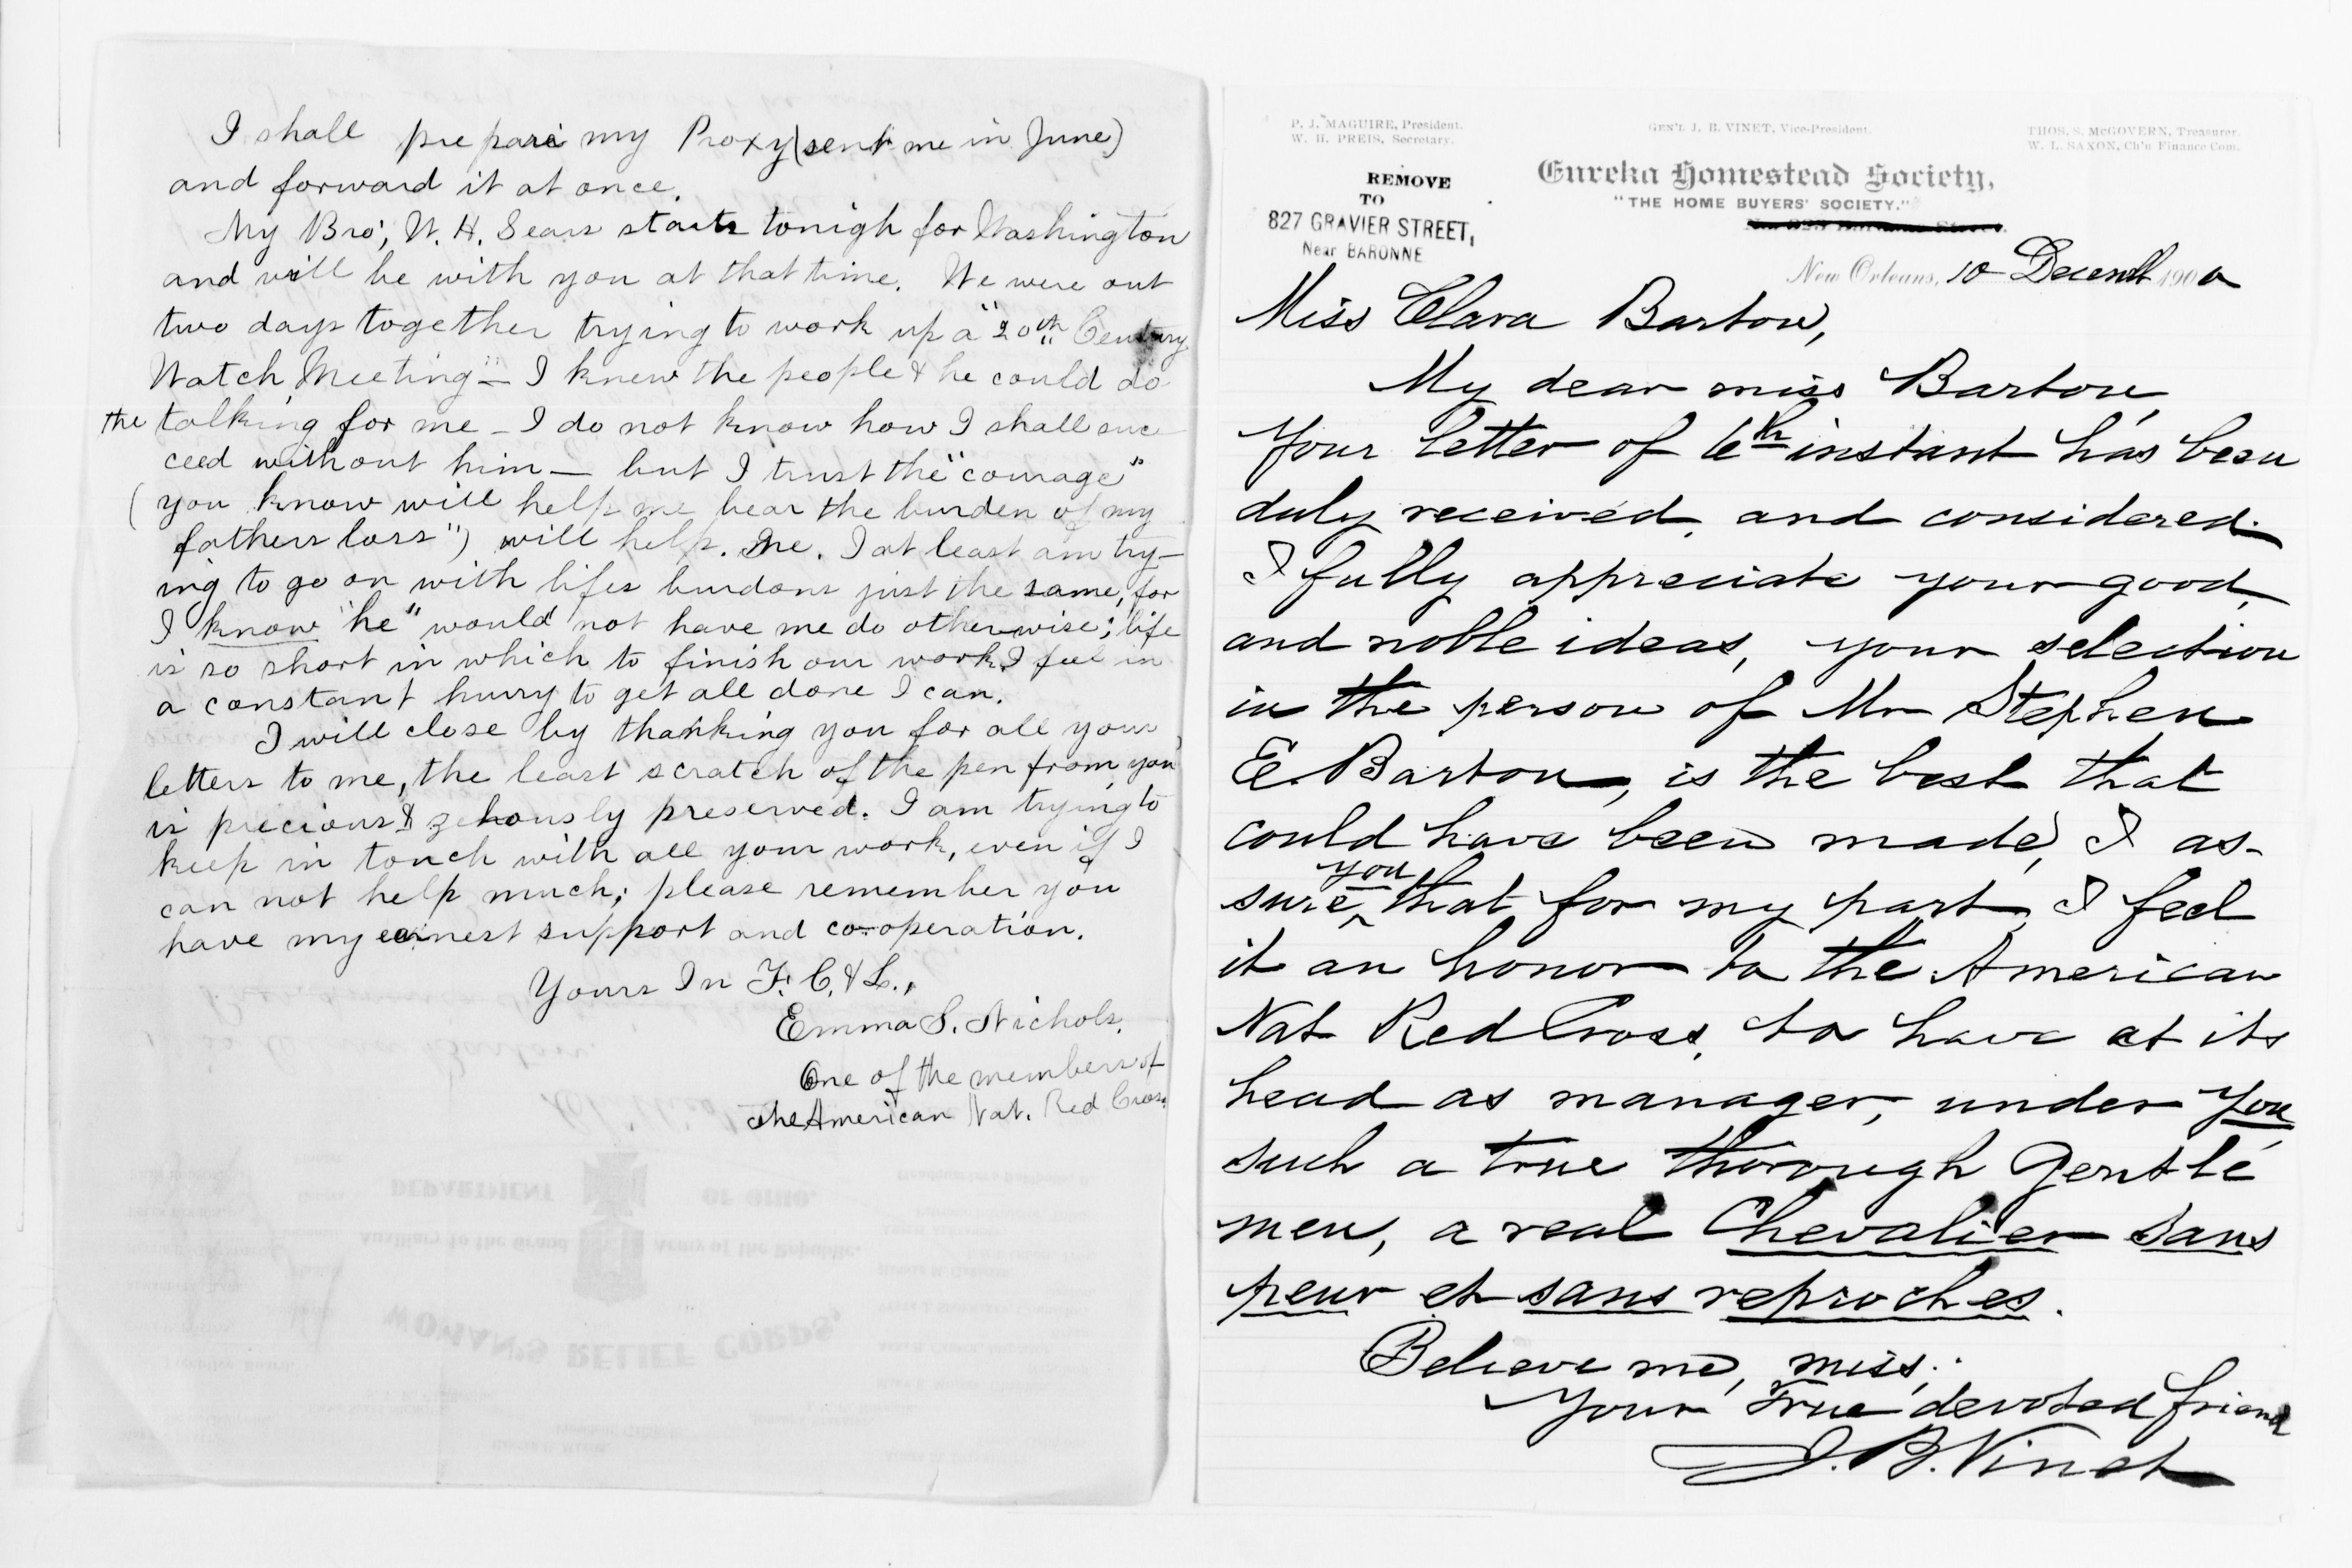 I shall prepare my Proxy (sent me in June)
and forward it at once.
My Bro; W. H. Sears starts tonigh for Washington
and will be with you at that time. We were out
two days together trying to work up a "20th Century
Watch Meeting" — I knew the people & he could do
the talking for me — I do not know how I shall suc
ceed without him — but I trust the "courage"
(you know will help me bear the burden of my
fathers loss") will help. me. I at least am try-
ing to go on with lifes burdons just the same, for
I know "he" would not have me do otherwise; life
is so short in which to finish our work, I feel in
a constant hurry to get all done I can.
I will close by thanking you for all your
letters to me, the least scratch of the pen from you
is precious & zelously preserved. I am trying to
keep in touch with all your work, even if I
can not help much; please remember you
have my earnest support and co-operation.
Yours In F. C. & L.,
Emma S. Nichols.
One of the members of
The American Nat. Red Cross.
DEPARTMENT OF OHIO.
Auxiliary to the Grand Army of the Republic.
WOMAN'S RELIEF CORPS,
P. J. MAGUIRE, President.
W. H. PREIS, Secretary.
GEN'L J. B. VINET, Vice-President.
THOS. S. McGOVERN, Treasurer.
W. L. SAXON, Ch'n Finance Com.
Eureka Homestead Society,
"THE HOME BUYERS' SOCIETY."
REMOVE
TO
827 GRAVIER STREET,
Near BARONNE
New Orleans, 10 Decemb 1900
Miss Clara Barton,
My dear miss Barton,
Your letter of 6th instant has been
duly received, and considered.
I fully appreciate your good,
and noble ideas, your selection
in the person of Mr Stephen
E. Barton, is the best that
could have been made, I as-
sure you that for my part, I feel
it an honor to the American
Nat Red Cross, to have at its
head as manager, under you,
such a true thorough Gentle
men, a real Chevalier sans
peur et sans reproches.
Believe me, miss,
Your true devoted friend
J. B. Vinet